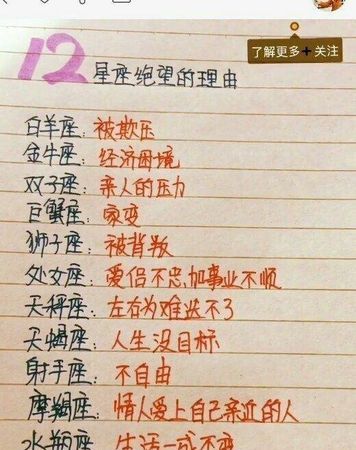 了解更多+关注
12星座绝望的理由
白羊座：被欺压
金牛座：经济困境
双子座：亲人的压力
巨蟹座：家变
狮子座：被背叛
处女座：爱侣不忠,加事业不顺
天秤座：左右为难选不了
天蝎座：人生没目标
射手座：不自由
摩羯座：情人爱上自己亲近的人
水瓶座：生活一成不变